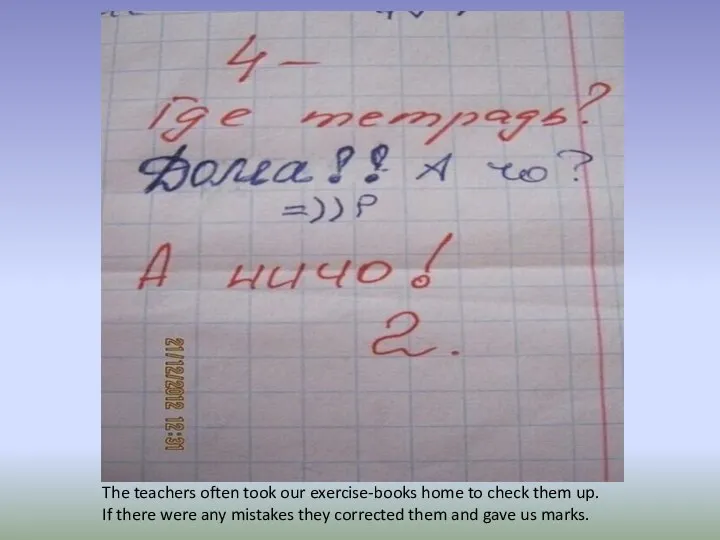 4 –
Где тетрадь?
Дома!! А чо?
=)) P
А ничо!
2.
21/12/2012 12:31
The teachers often took our exercise-books home to check them up.
If there were any mistakes they corrected them and gave us marks.